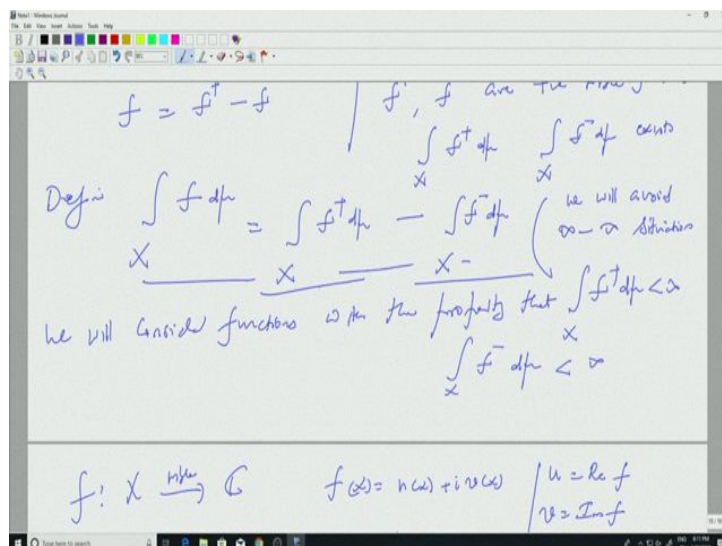 Note1 - Windows Journal
File Edit View Insert Actions Tools Help
f = f⁺ - f | f⁺, f are the
∫_X f⁺ dμ ∫_X f⁻ dμ exists
Define ∫_X f dμ = ∫_X f⁺ dμ - ∫_X f⁻ dμ
we will avoid
∞ - ∞ situation
we will consider functions with the property that ∫_X f⁺ dμ < ∞
∫_X f⁻ dμ < ∞
f: X → ℂ f(x) = u(x) + i v(x) | u = Re f
v = Im f
Type here to search
6:11 PM